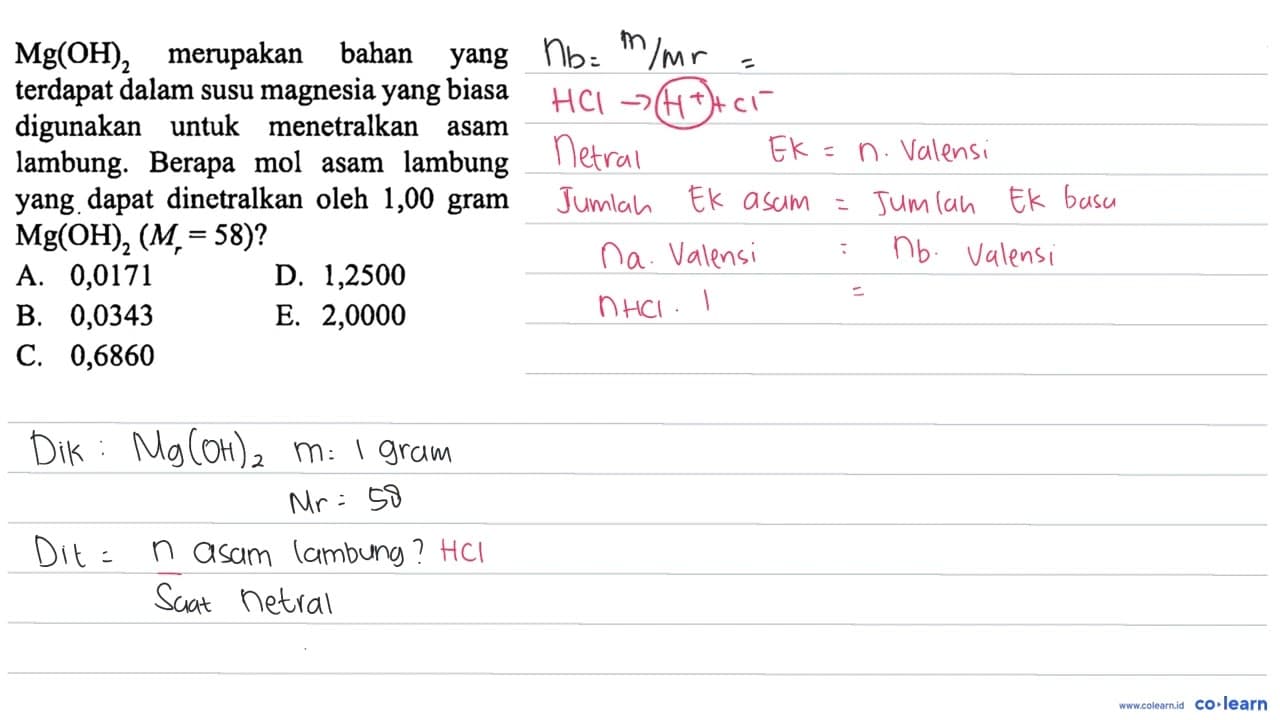 Mg(OH)₂ merupakan bahan yang
terdapat dalam susu magnesia yang biasa
digunakan untuk menetralkan asam
lambung. Berapa mol asam lambung
yang dapat dinetralkan oleh 1,00 gram
Mg(OH)₂ (Mᵣ = 58)?
A. 0,0171 D. 1,2500
B. 0,0343 E. 2,0000
C. 0,6860
nb = m/Mr =
HCl → H⁺ + Cl⁻
Netral Ek = n. Valensi
Jumlah Ek asam = Jumlah Ek basa
na. Valensi = nb. Valensi
nHCl . 1 =
Dik : Mg(OH)₂ m = 1 gram
Mr = 58
Dit = n asam lambung? HCl
Saat netral
www.colearn.id co·learn